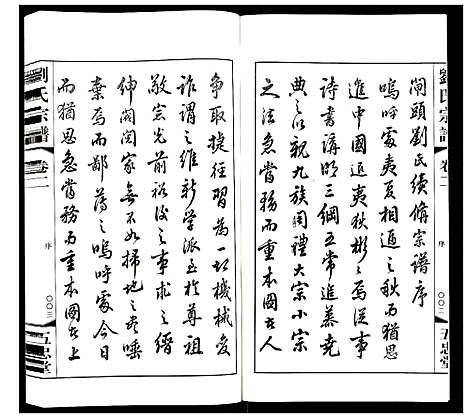 劉氏宗譜
卷二
序
〇〇二
五忠堂
閘頭劉氏續脩宗譜序
嗚呼處夷夏相遁之秋而猶思
進中國追夷狄彬之焉從事
詩書講明三綱五常追慕堯
典之以親九族周禮大宗小宗
之法急嘗務而重本國者人
爭取捷徑習為一切機械變
詐謂之維新學派至於尊祖
敬宗光前裕後之事求之縉
紳閥閱家無不如掃地之委唾
棄焉而鄙薄之嗚呼處今日
而猶思急嘗務而重本國者上
劉氏宗譜
卷二
序
〇〇三
五忠堂